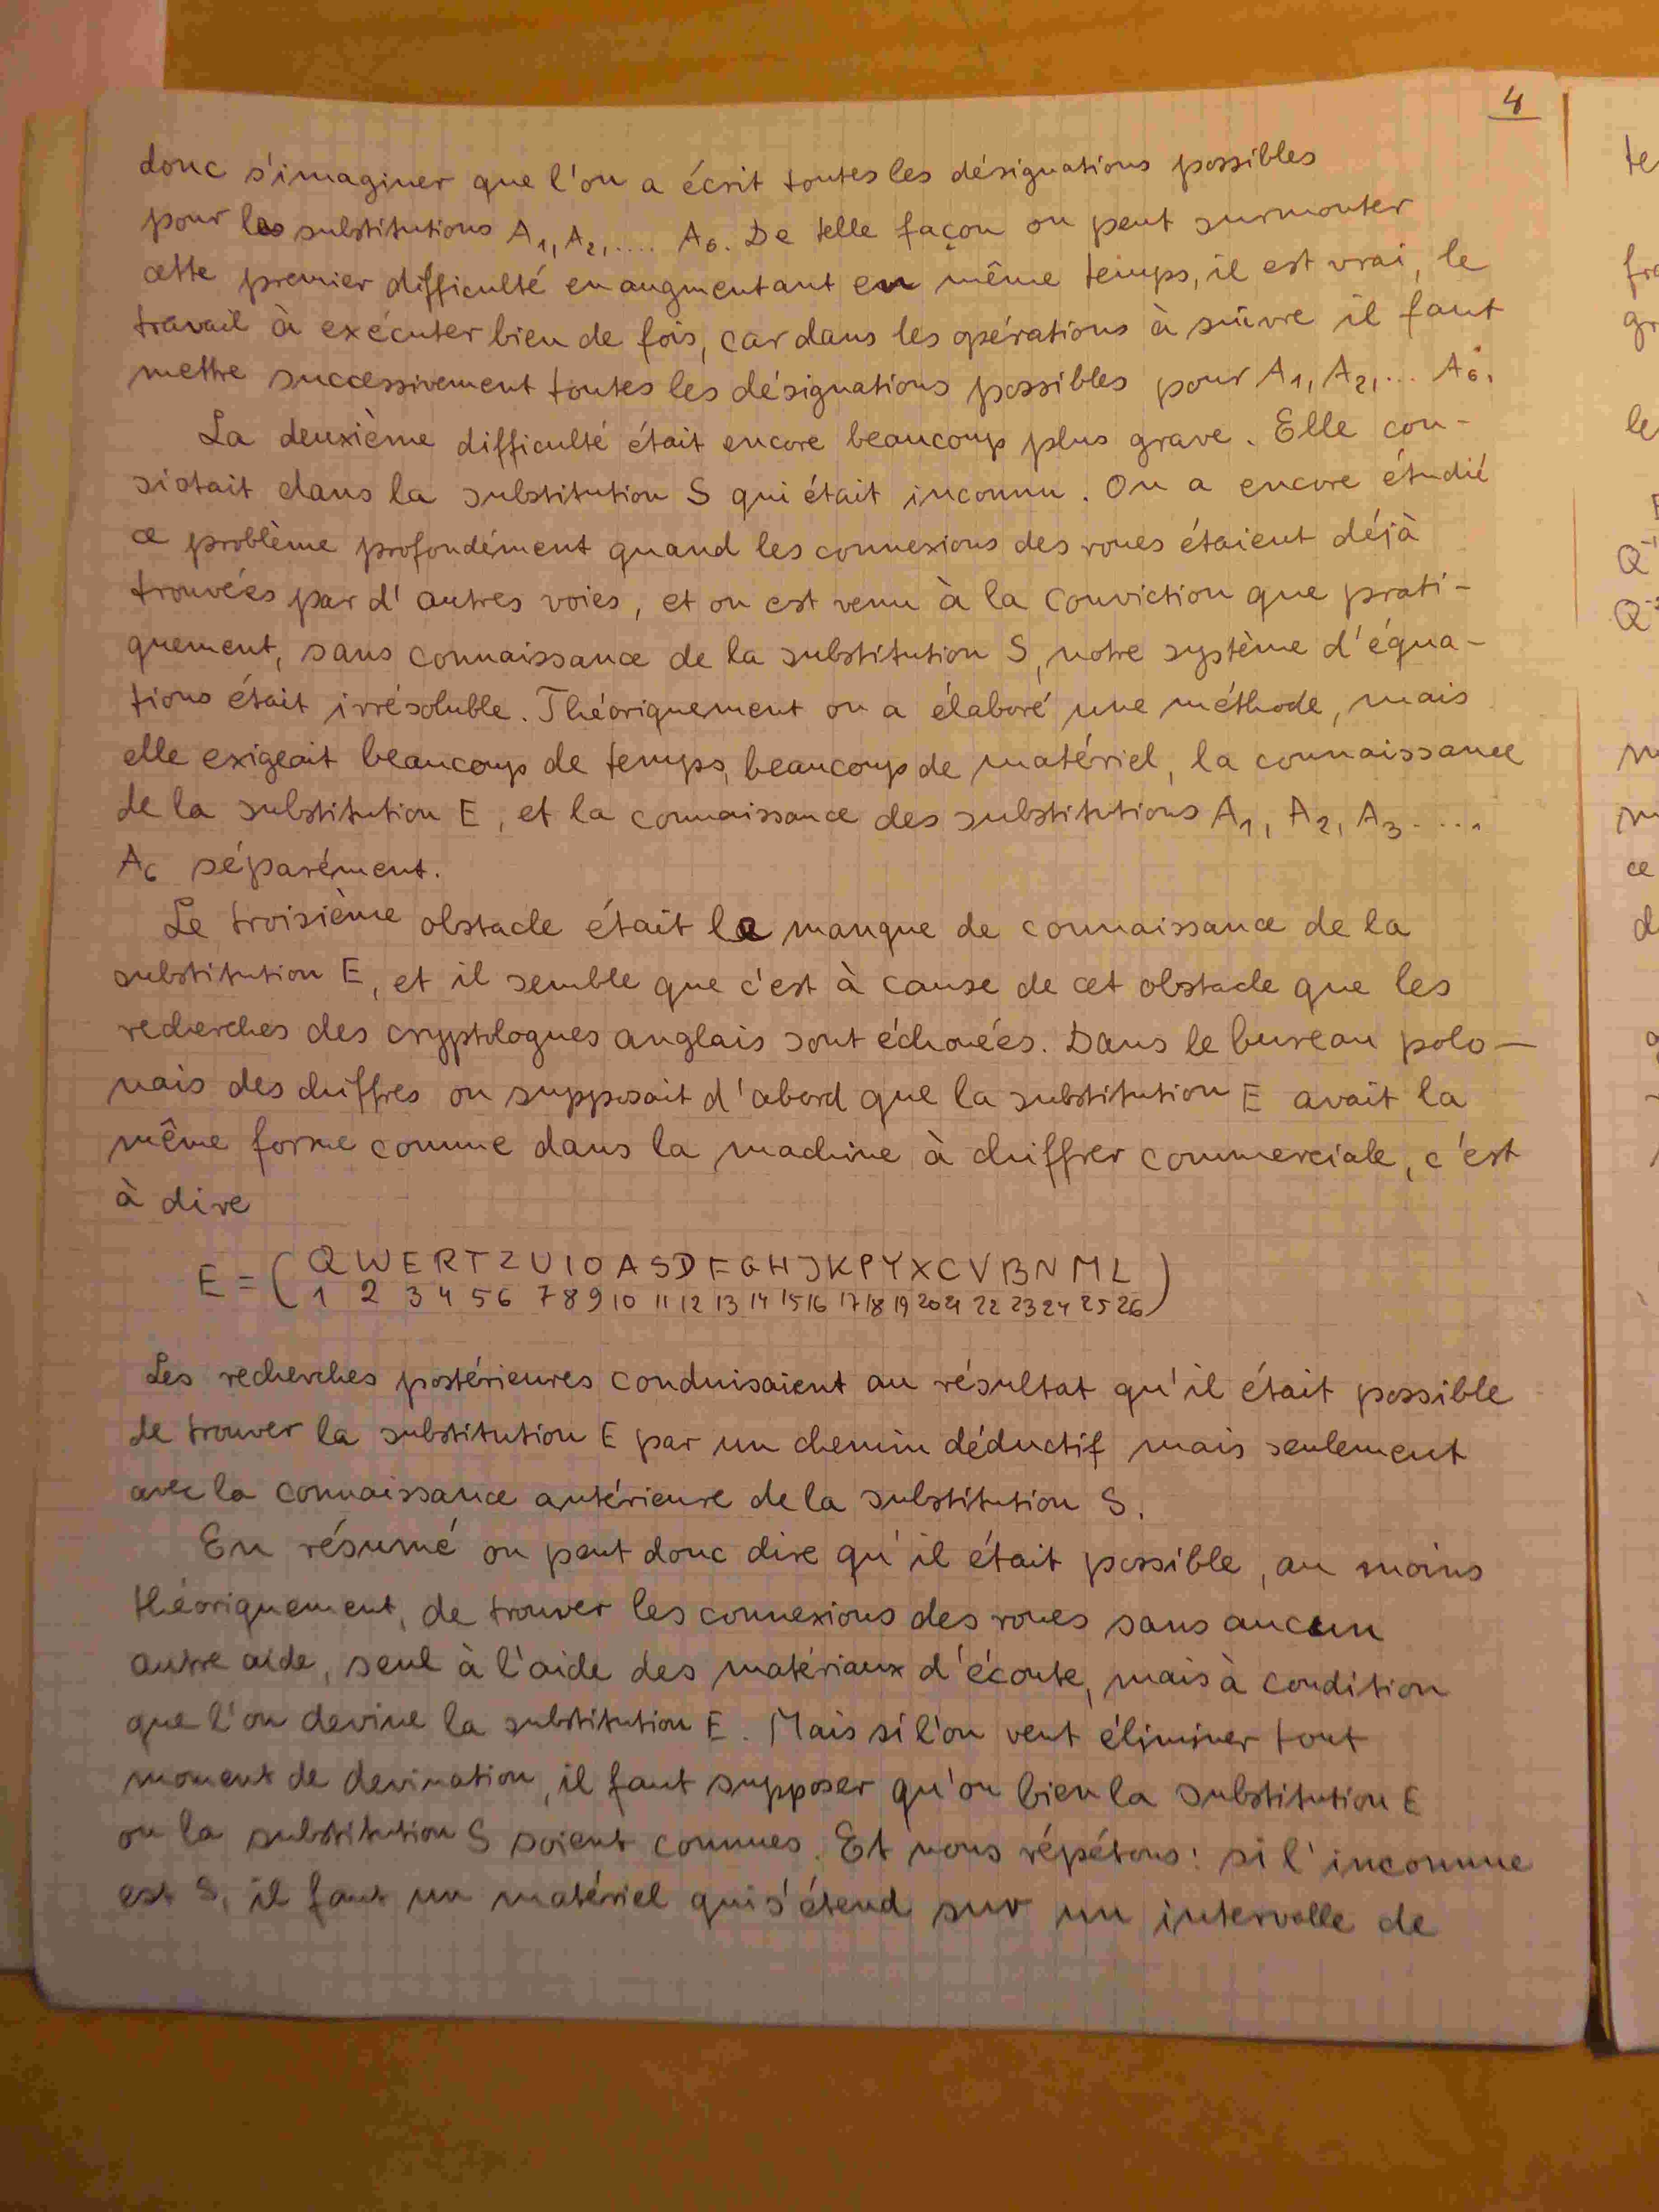 4
donc s'imaginer que l'on a écrit toutes les désignations possibles
pour les substitutions A1, A2, .... A6. De telle façon on peut surmonter
cette premier difficulté en augmentant en même temps, il est vrai, le
travail à exécuter bien de fois, car dans les opérations à suivre il faut
mettre successivement toutes les désignations possibles pour A1, A2, ... A6.
La deuxième difficulté était encore beaucoup plus grave. Elle con-
sistait dans la substitution S qui était inconnu. On a encore étudié
ce problème profondément quand les connexions des roues étaient déjà
trouvées par d'autres voies, et on est venu à la conviction que prati-
quement, sans connaissance de la substitution S, notre système d'équa-
tions était irrésoluble. Théoriquement on a élaboré une méthode, mais
elle exigeait beaucoup de temps, beaucoup de matériel, la connaissance
de la substitution E, et la connaissance des substitutions A1, A2, A3 ....
A6 séparément.
Le troisième obstacle était le manque de connaissance de la
substitution E, et il semble que c'est à cause de cet obstacle que les
recherches des cryptologues anglais sont échouées. Dans le bureau polo-
nais des chiffres on supposait d'abord que la substitution E avait la
même forme comme dans la machine à chiffrer commerciale, c'est
à dire
E = ( Q W E R T Z U I O A S D F G H J K P Y X C V B N M L )
1 2 3 4 5 6 7 8 9 10 11 12 13 14 15 16 17 18 19 20 21 22 23 24 25 26
Les recherches postérieures conduisaient au résultat qu'il était possible
de trouver la substitution E par un chemin déductif mais seulement
avec la connaissance antérieure de la substitution S.
En résumé on peut donc dire qu'il était possible, au moins
théoriquement, de trouver les connexions des roues sans aucun
autre aide, seul à l'aide des matériaux d'écoute, mais à condition
que l'on devine la substitution E. Mais si l'on veut éliminer tout
moment de devination, il faut supposer qu'ou bien la substitution E
ou la substitution S soient connues. Et nous répétons: si l'inconnue
est S, il faut un matériel qui s'étend sur un intervalle de